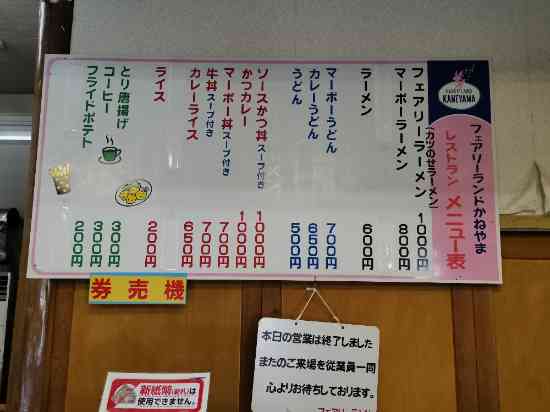 FAIRY LAND
KANEYAMA
フェアリーランドかねやま
レストラン メニュー表
フェアリーラーメン 1000円
(カツのせラーメン)
マーボーラーメン 800円
ラーメン 600円
マーボーうどん 700円
カレーうどん 650円
うどん 500円
ソースかつ丼 スープ付き 1000円
かつカレー 1000円
マーボー丼 スープ付き 700円
牛丼 スープ付き 700円
カレーライス 650円
ライス 200円
とり唐揚げ 300円
コーヒー 300円
フライドポテト 200円
券売機
本日の営業は終了しました
またのご来場を従業員一同
心よりお待ちしております。
新紙幣(新札)は
使用できません。